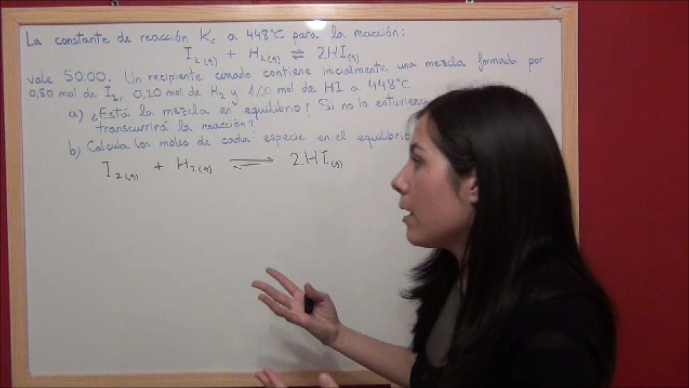 La constante de reacción Kc a 448°C para la reacción:
I2(g) + H2(g) ⇌ 2HI(g)
vale 50.00. Un recipiente cerrado contiene inicialmente una mezcla formada por
0,80 mol de I2, 0,20 mol de H2 y 1.00 mol de HI a 448°C
a) ¿Está la mezcla en equilibrio? Si no lo estuviera
transcurrirá la reacción?
b) Calcula los moles de cada especie en el equilibrio
I2(g) + H2(g) ⇌ 2HI(g)